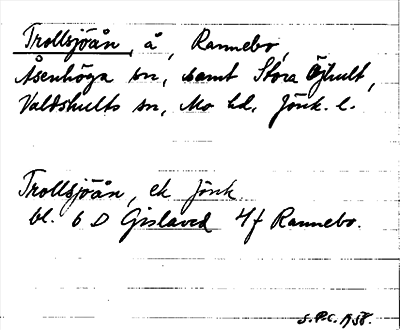 Trollsjöån, å, Rannebo,
Åsenhöga sn, samt Stora Öjhult,
Valdshults sn, Mo hd, Jönk. l.
Trollsjöån, ek Jönk.
bl. 6 D Gislaved 4f Rannebo.
S.P.C. 1958.